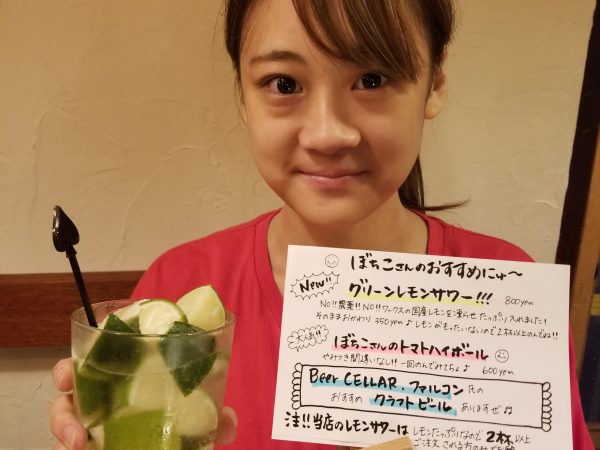 ぼちこさんのおすすめにゅ〜
New!! グリーンレモンサワー!!! 800yen
NO!!農薬!!NO!!ワックスの国産レモンを凍らせたっぷり入れました!
そのままおかわり350yen♪レモンがもったいないので2杯以上のんでね!!
大人気!! ぼちこさんのトマトハイボール
やみつき間違いなし!!一回のんでみてちょ♪ 600yen
Beer CELLAR.ファルコン氏の
おすすめ クラフトビール ありますぜ♫
注!!当店のレモンサワーは レモンたっぷりなので2杯以上
ご注文